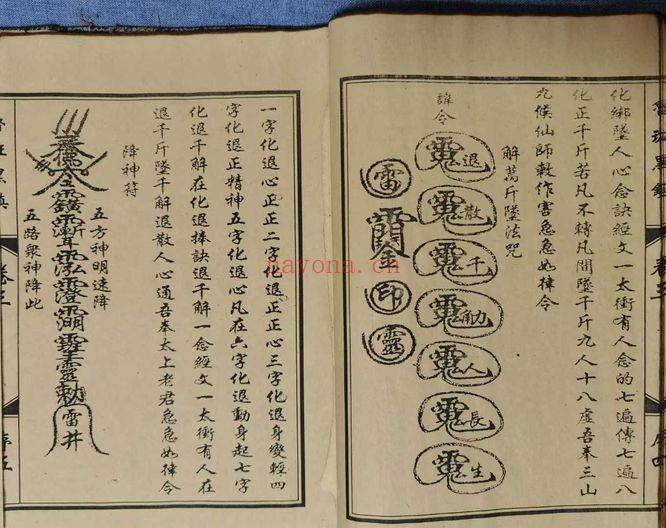 化綁墜人心念訣經文一太衝有人念的七遍傳七遍八
化正千斤若凡不轉凡間墜千斤九人十八虛吾奉三山
九候仙師敕作害急急如律令
解萬斤墜法咒
諱令
退
散
千
觔
人
長
生
雷
印
靈
一字化退心正正二字化退正正心三字化退身變輕四
字化退正精神五字化退心凡在六字化退動身起七字
化退千解在化退捧訣退千解一念經文一太衝有人在
退千斤墜千解退散人心通吾奉太上老君急急如律令
降神符
五方神明速降
勅
雷井
五路衆神降此
卷三
序五
nayona.cn